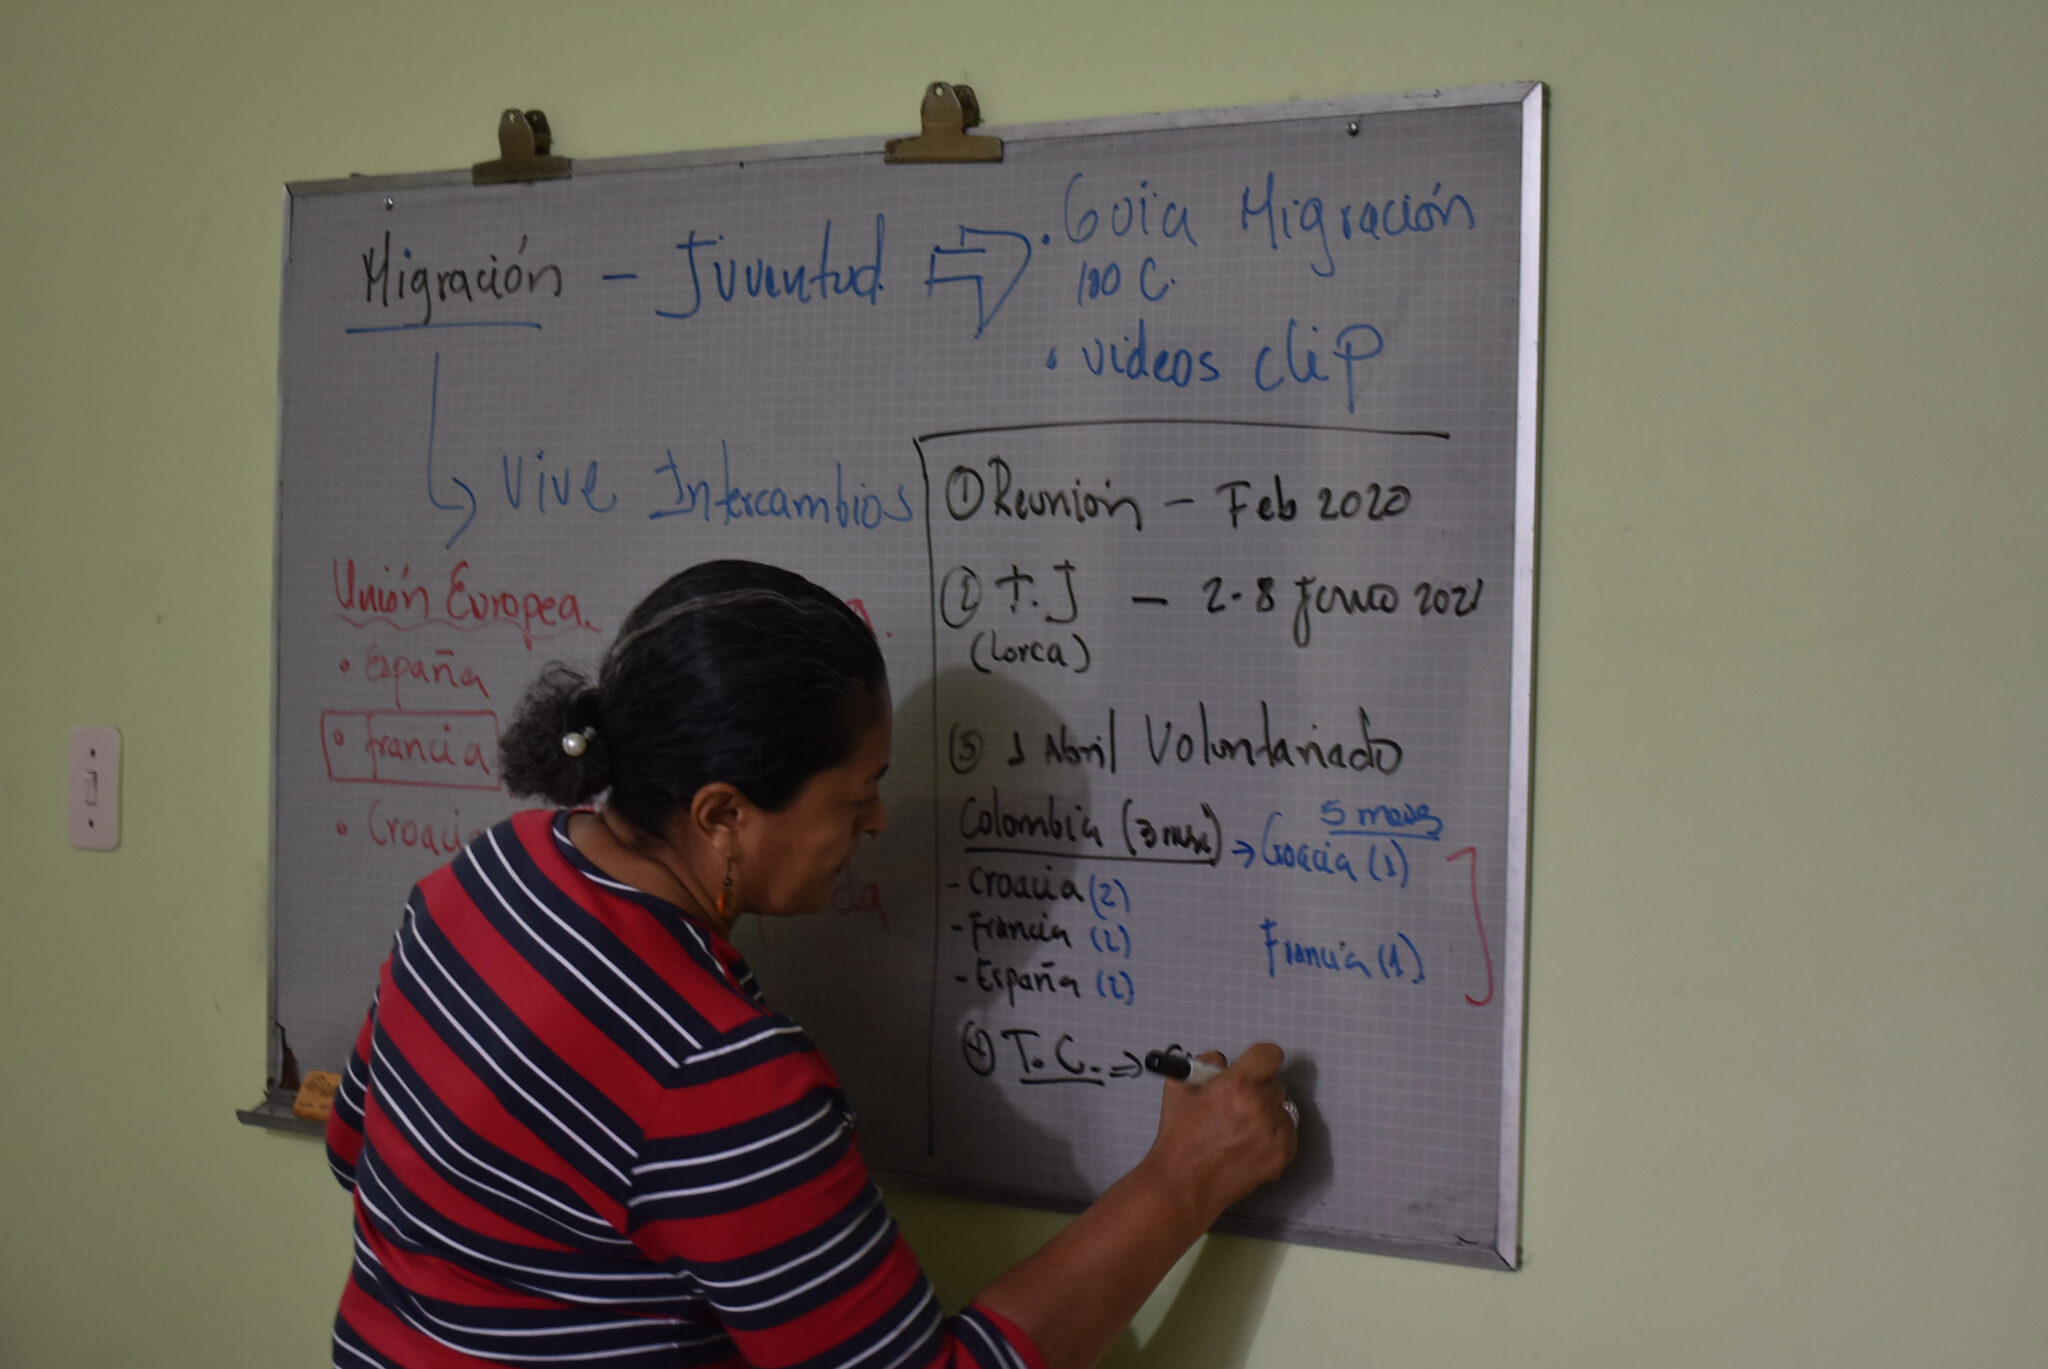 Migración - Juventud
• Guia Migración
100 C.
• videos clip
Vive Intercambios
Unión Europea.
• España
• Francia
• Croacia
① Reunión - Feb 2020
② T.J - 2-8 Junio 2021
(Lorca)
③ 1 Abril Voluntariado
5 meses
Colombia (3 mese) → Croacia (1)
- Croacia (2)
- Francia (2)
Francia (1)
- España (2)
④ T. C. ⇒